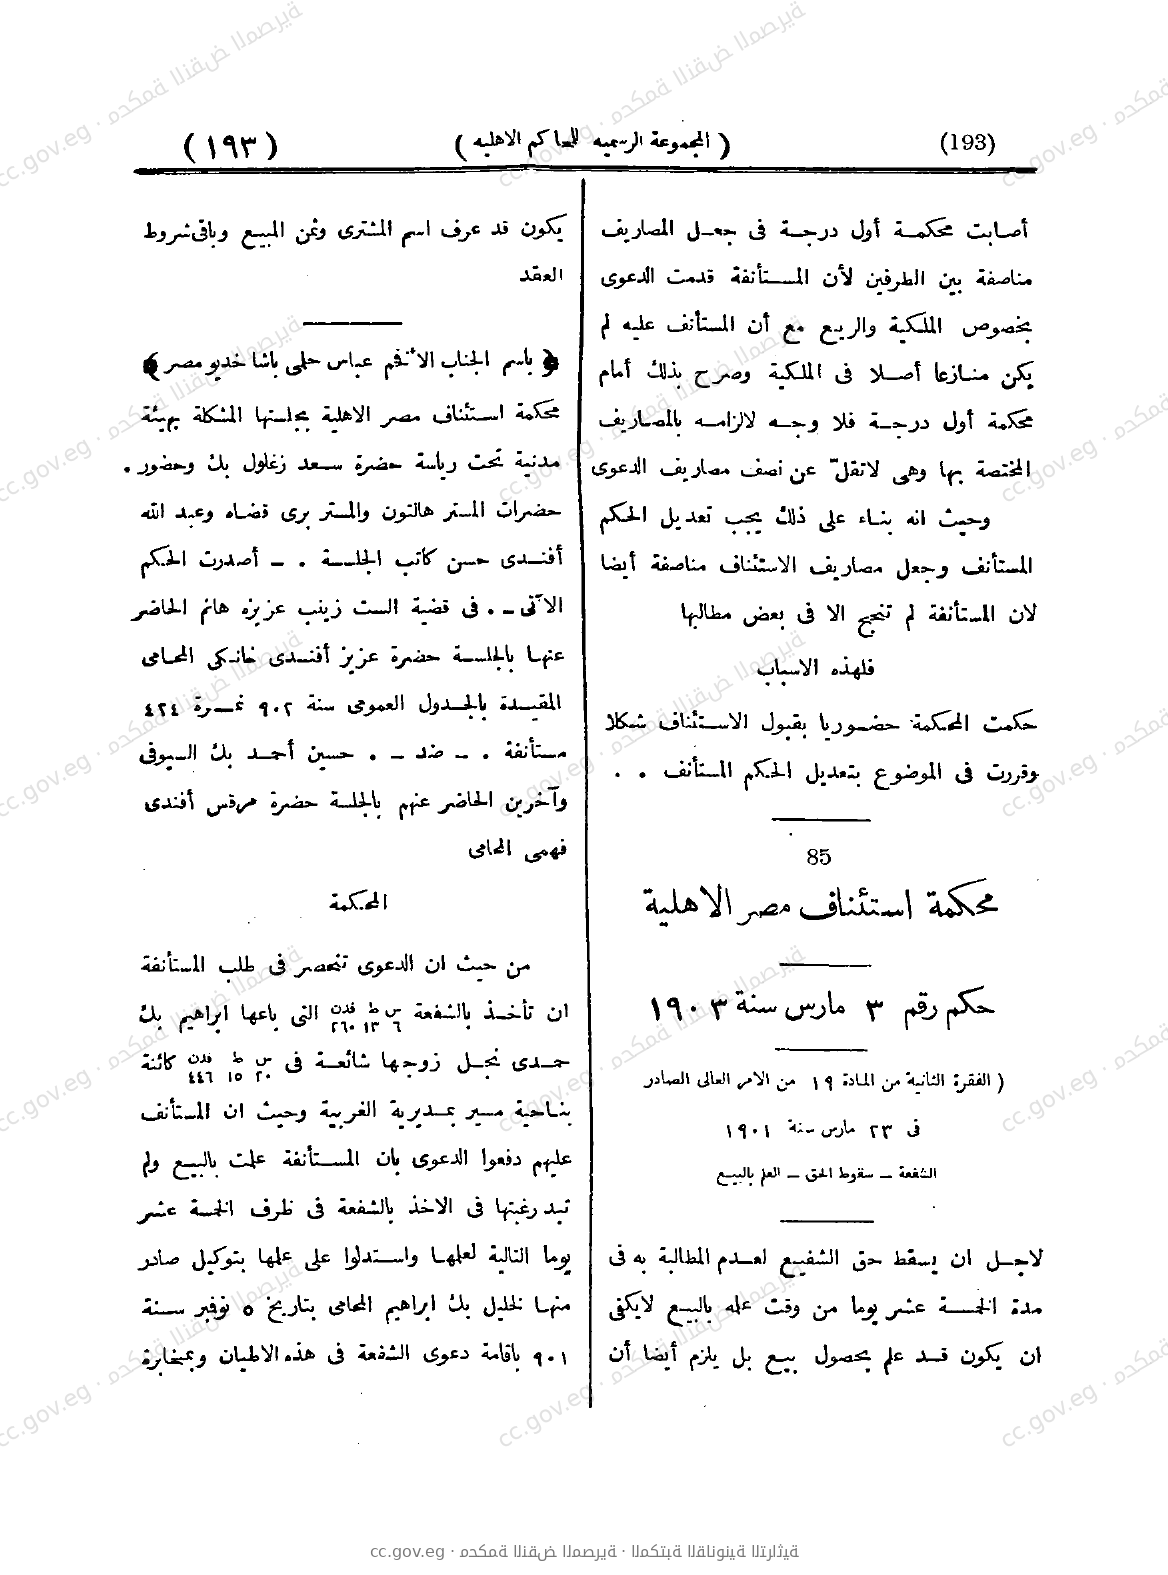 (193) ( المجموعة الرسميه للمحاكم الاهليه ) ( ١٩٣ )
أصابت محكمة أول درجة فى جعل المصاريف
مناصفة بين الطرفين لأن المستأنفة قدمت الدعوى
بخصوص الملكية والريع مع أن المستأنف عليه لم
يكن منازعا أصلا فى الملكية وصرح بذلك أمام
محكمة أول درجة فلا وجه لالزامه بالمصاريف
المختصة بها وهى لاتقلّ عن نصف مصاريف الدعوى
وحيث انه بناء على ذلك يجب تعديل الحكم
المستأنف وجعل مصاريف الاستئناف مناصفة أيضا
لان المستأنفة لم تنجح الا فى بعض مطالبها
فلهذه الاسباب
حكمت المحكمة حضوريا بقبول الاستئناف شكلا
وقررت فى الموضوع بتعديل الحكم المستأنف . .
85
محكمة استئناف مصر الاهلية
حكم رقم ٣ مارس سنة ١٩٠٣
( الفقرة الثانية من المادة ١٩ من الامر العالى الصادر
فى ٢٣ مارس سنة ١٩٠١
الشفعة – سقوط الحق – العلم بالبيع
لاجل ان يسقط حق الشفيع لعدم المطالبة به فى
مدة الخمسة عشر يوما من وقت علمه بالبيع لايكفى
ان يكون قد علم بحصول بيع بل يلزم أيضا أن
يكون قد عرف اسم المشترى وثمن المبيع وباقى شروط
العقد
﴿ باسم الجناب الأفخم عباس حلمى باشا خديو مصر ﴾
محكمة استئناف مصر الاهلية بجلستها المشكلة بهيئة
مدنية تحت رياسة حضرة سعد زغلول بك وحضور .
حضرات المستر هالتون والمستر برى قضاه وعبد الله
أفندى حسن كاتب الجلسة . – أصدرت الحكم
الآتى – . فى قضية الست زينب عزيزه هانم الحاضر
عنها بالجلسة حضرة عزيز أفندى خانكى المحامى
المقيدة بالجدول العمومى سنة ٩٠٢ نمرة ٤٢٤
مستأنفة . – ضد – . حسين أحمد بك السيوفى
وآخرين الحاضر عنهم بالجلسة حضرة مرقس أفندى
فهمى المحامى
المحكمة
من حيث ان الدعوى تنحصر فى طلب المستأنفة
ان تأخذ بالشفعة س ٦ ط ١٣ فدن ٢٦٠ التى باعها ابراهيم بك
حمدى نجل زوجها شائعة فى س ٢٠ ط ١٥ فدن ٤٤٦ كائنة
بناحية مسير بمديرية الغربية وحيث ان المستأنف
عليهم دفعوا الدعوى بان المستأنفة علمت بالبيع ولم
تبد رغبتها فى الاخذ بالشفعة فى ظرف الخمسة عشر
يوما التالية لعلمها واستدلوا على علمها بتوكيل صادر
منها لخليل بك ابراهيم المحامى بتاريخ ٥ نوفمبر سنة
٩٠١ باقامة دعوى الشفعة فى هذه الاطيان وبمخابرة
cc.gov.eg · محكمة النقض المصرية · المكتبة القانونية التراثية